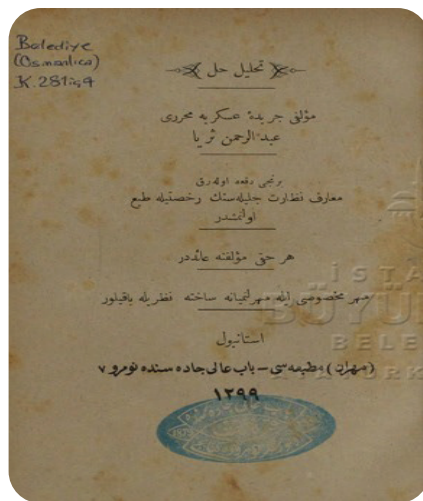 Belediye
(Osmanlıca)
K. 281
تحليل حل
مؤلفی جريدۀ عسكريه محرری
عبدالرحمن ثريا
برنجی دفعه اوله‌رق
معارف نظارت جليله‌سنك رخصتيله طبع
اولنمشدر
هر حقی مؤلفنه عائددر
مهر مخصوصی ايله مهرلنميانه ساخته نظريله باقيلور
استانبول
(مهران) مطبعه‌سی – باب عالی جاده سنده نومرو ٧
١٢٩٩
İSTA
BÜYÜ
BELE
ATATÜRK